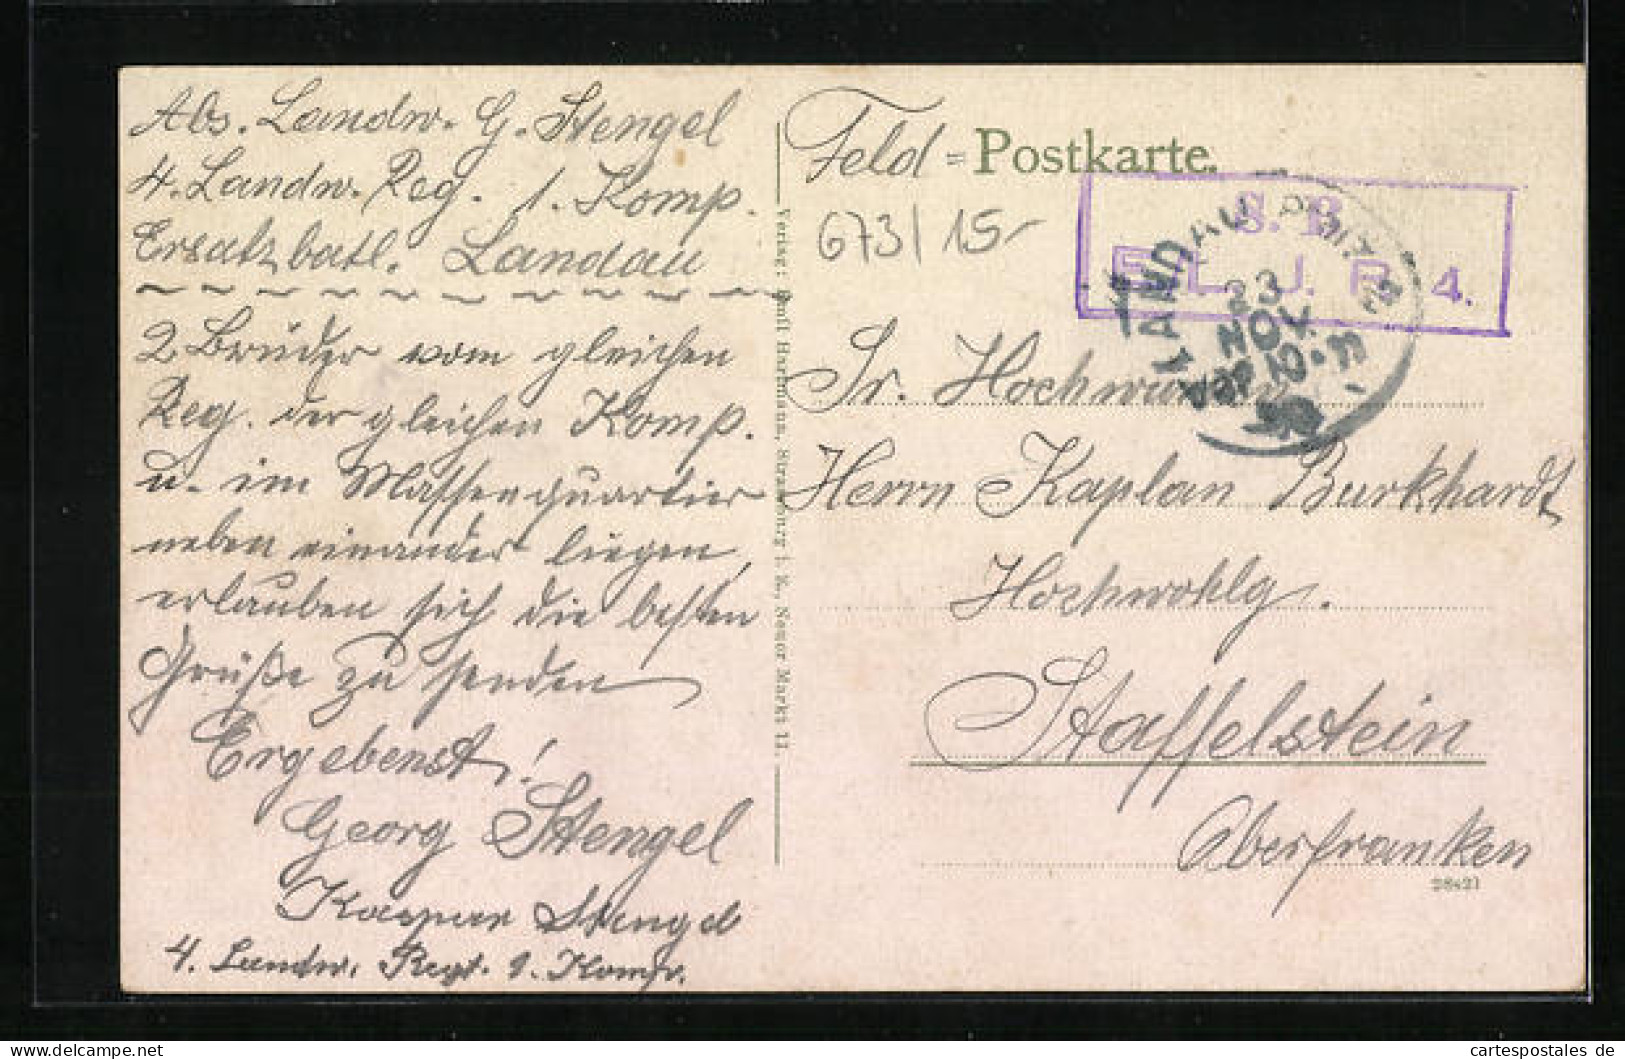 Abs. Landw. G. Stengel
4. Landw. Reg. 1. Komp.
Ersatzbatl. Landau
2 Brüder vom gleichen
Reg. der gleichen Komp.
u. im Massenquartier
neben einander liegen,
erlauben sich die besten
Grüße zu senden
Ergebenst!
Georg Stengel
Kaspar Stengel
4. Landw. Regt. 1. Komp.
Verlag: Emil Hartmann, Strassburg i. E., Neuer Markt 11.
Feld = Postkarte.
673/15-
S. B.
E. L. J. R. 4.
LANDAU PFALZ
23
NOV
Sr. Hochwürden
Herrn Kaplan Burkhardt
Hochwohlg.
Staffelstein
Oberfranken
28421
cartespostales-de-collection.com
cartespostales de